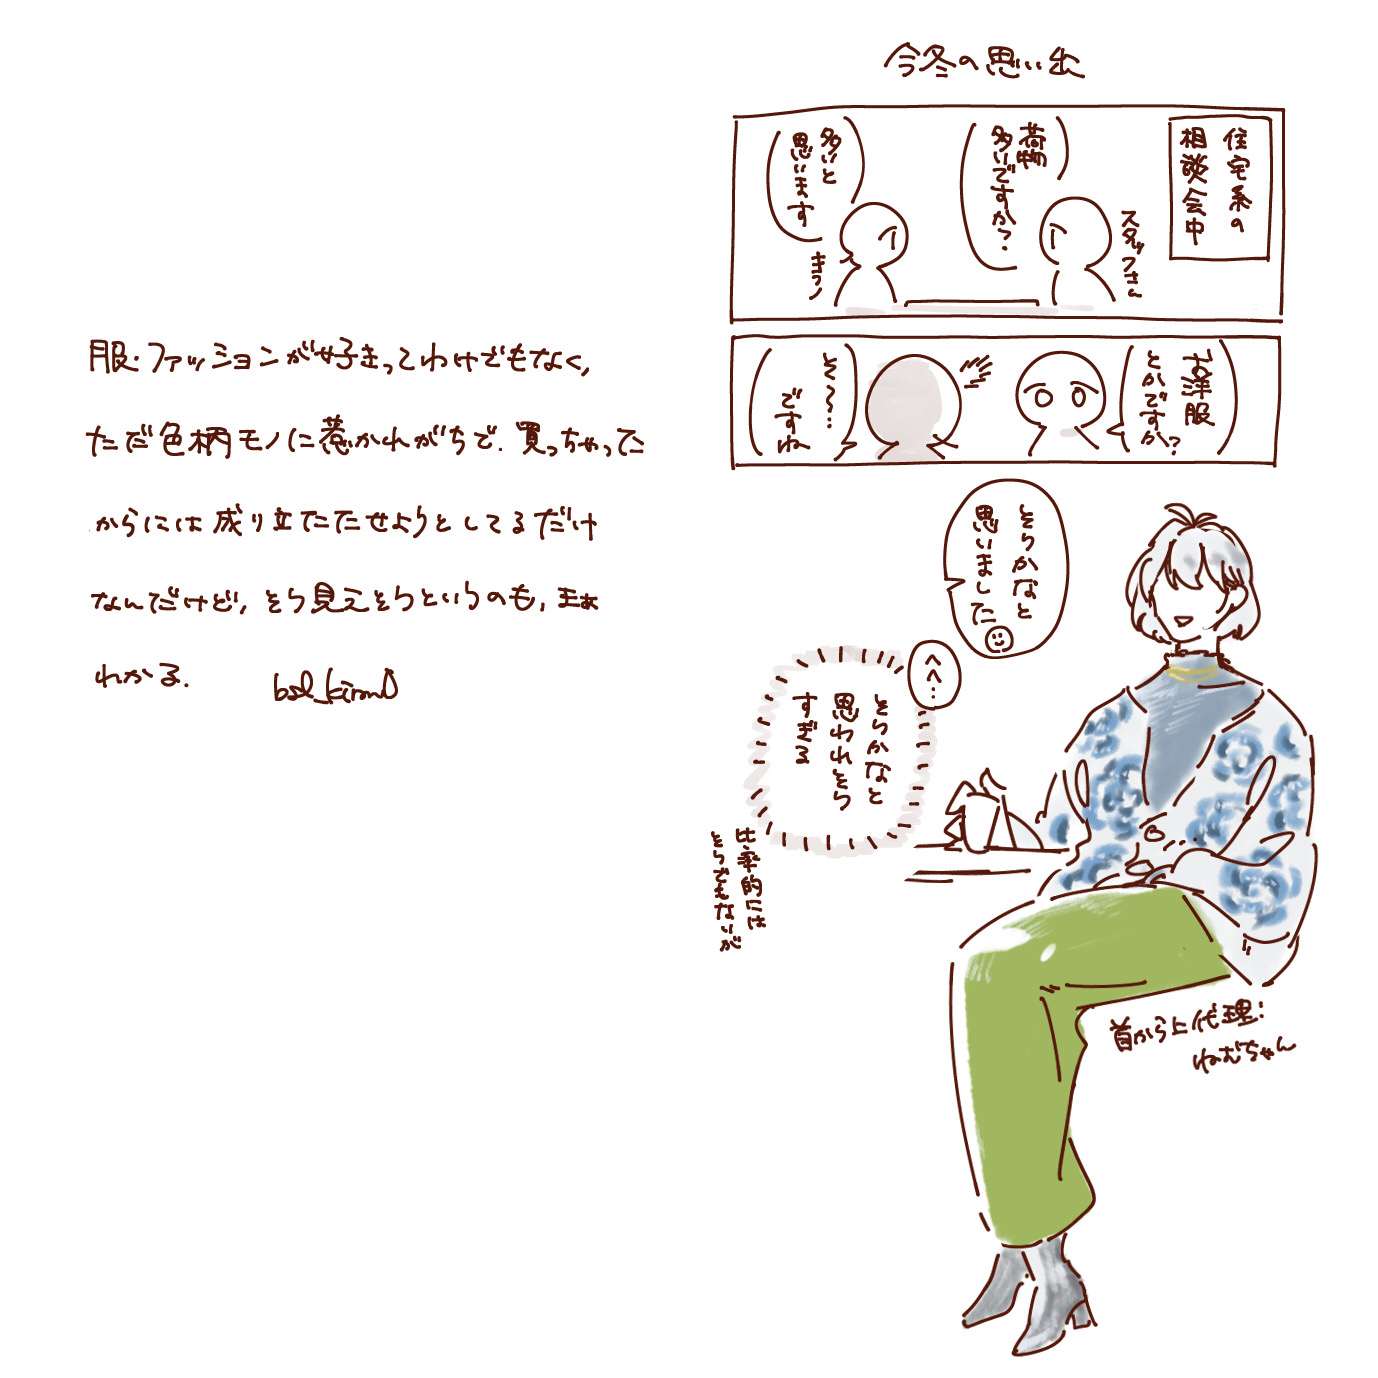 今冬の思い出
住宅系の
相談会中
スタッフさん
荷物
多いですか?
多いと
思います
きラノ
お洋服
とかですか?
そ〜〜…
ですね
そうかなと
思いました
へへ…
そうかなと
思われそう
すぎる
比率的には
そうでもないが
首から上代理:
ねむちゃん
服・ファッションが好きってわけでもなく,
ただ色柄モノに惹かれがちで、買っちゃった
からには成り立たせようとしてるだけ
なんだけど, そう見えそうというのも, まぁ
わかる.